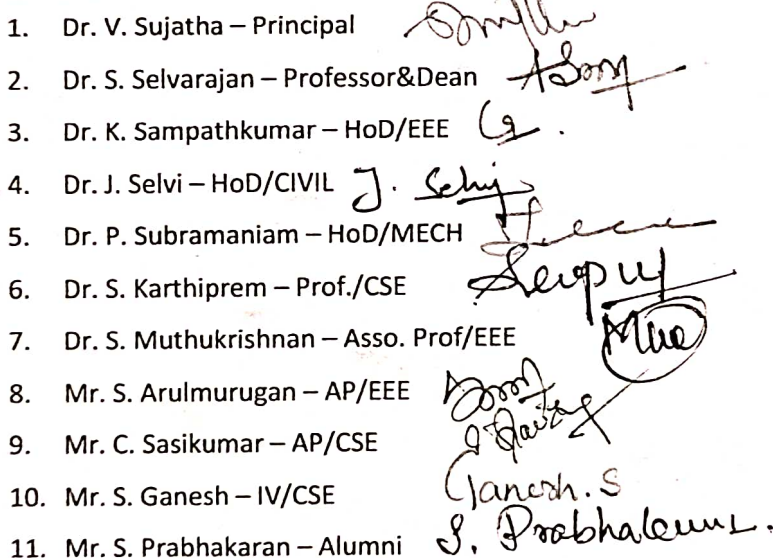 1. Dr. V. Sujatha – Principal
2. Dr. S. Selvarajan – Professor&Dean
3. Dr. K. Sampathkumar – HoD/EEE
4. Dr. J. Selvi – HoD/CIVIL J. Selvi
5. Dr. P. Subramaniam – HoD/MECH
6. Dr. S. Karthiprem – Prof./CSE
7. Dr. S. Muthukrishnan – Asso. Prof/EEE
8. Mr. S. Arulmurugan – AP/EEE
9. Mr. C. Sasikumar – AP/CSE
10. Mr. S. Ganesh – IV/CSE Ganesh. S
11. Mr. S. Prabhakaran – Alumni S.